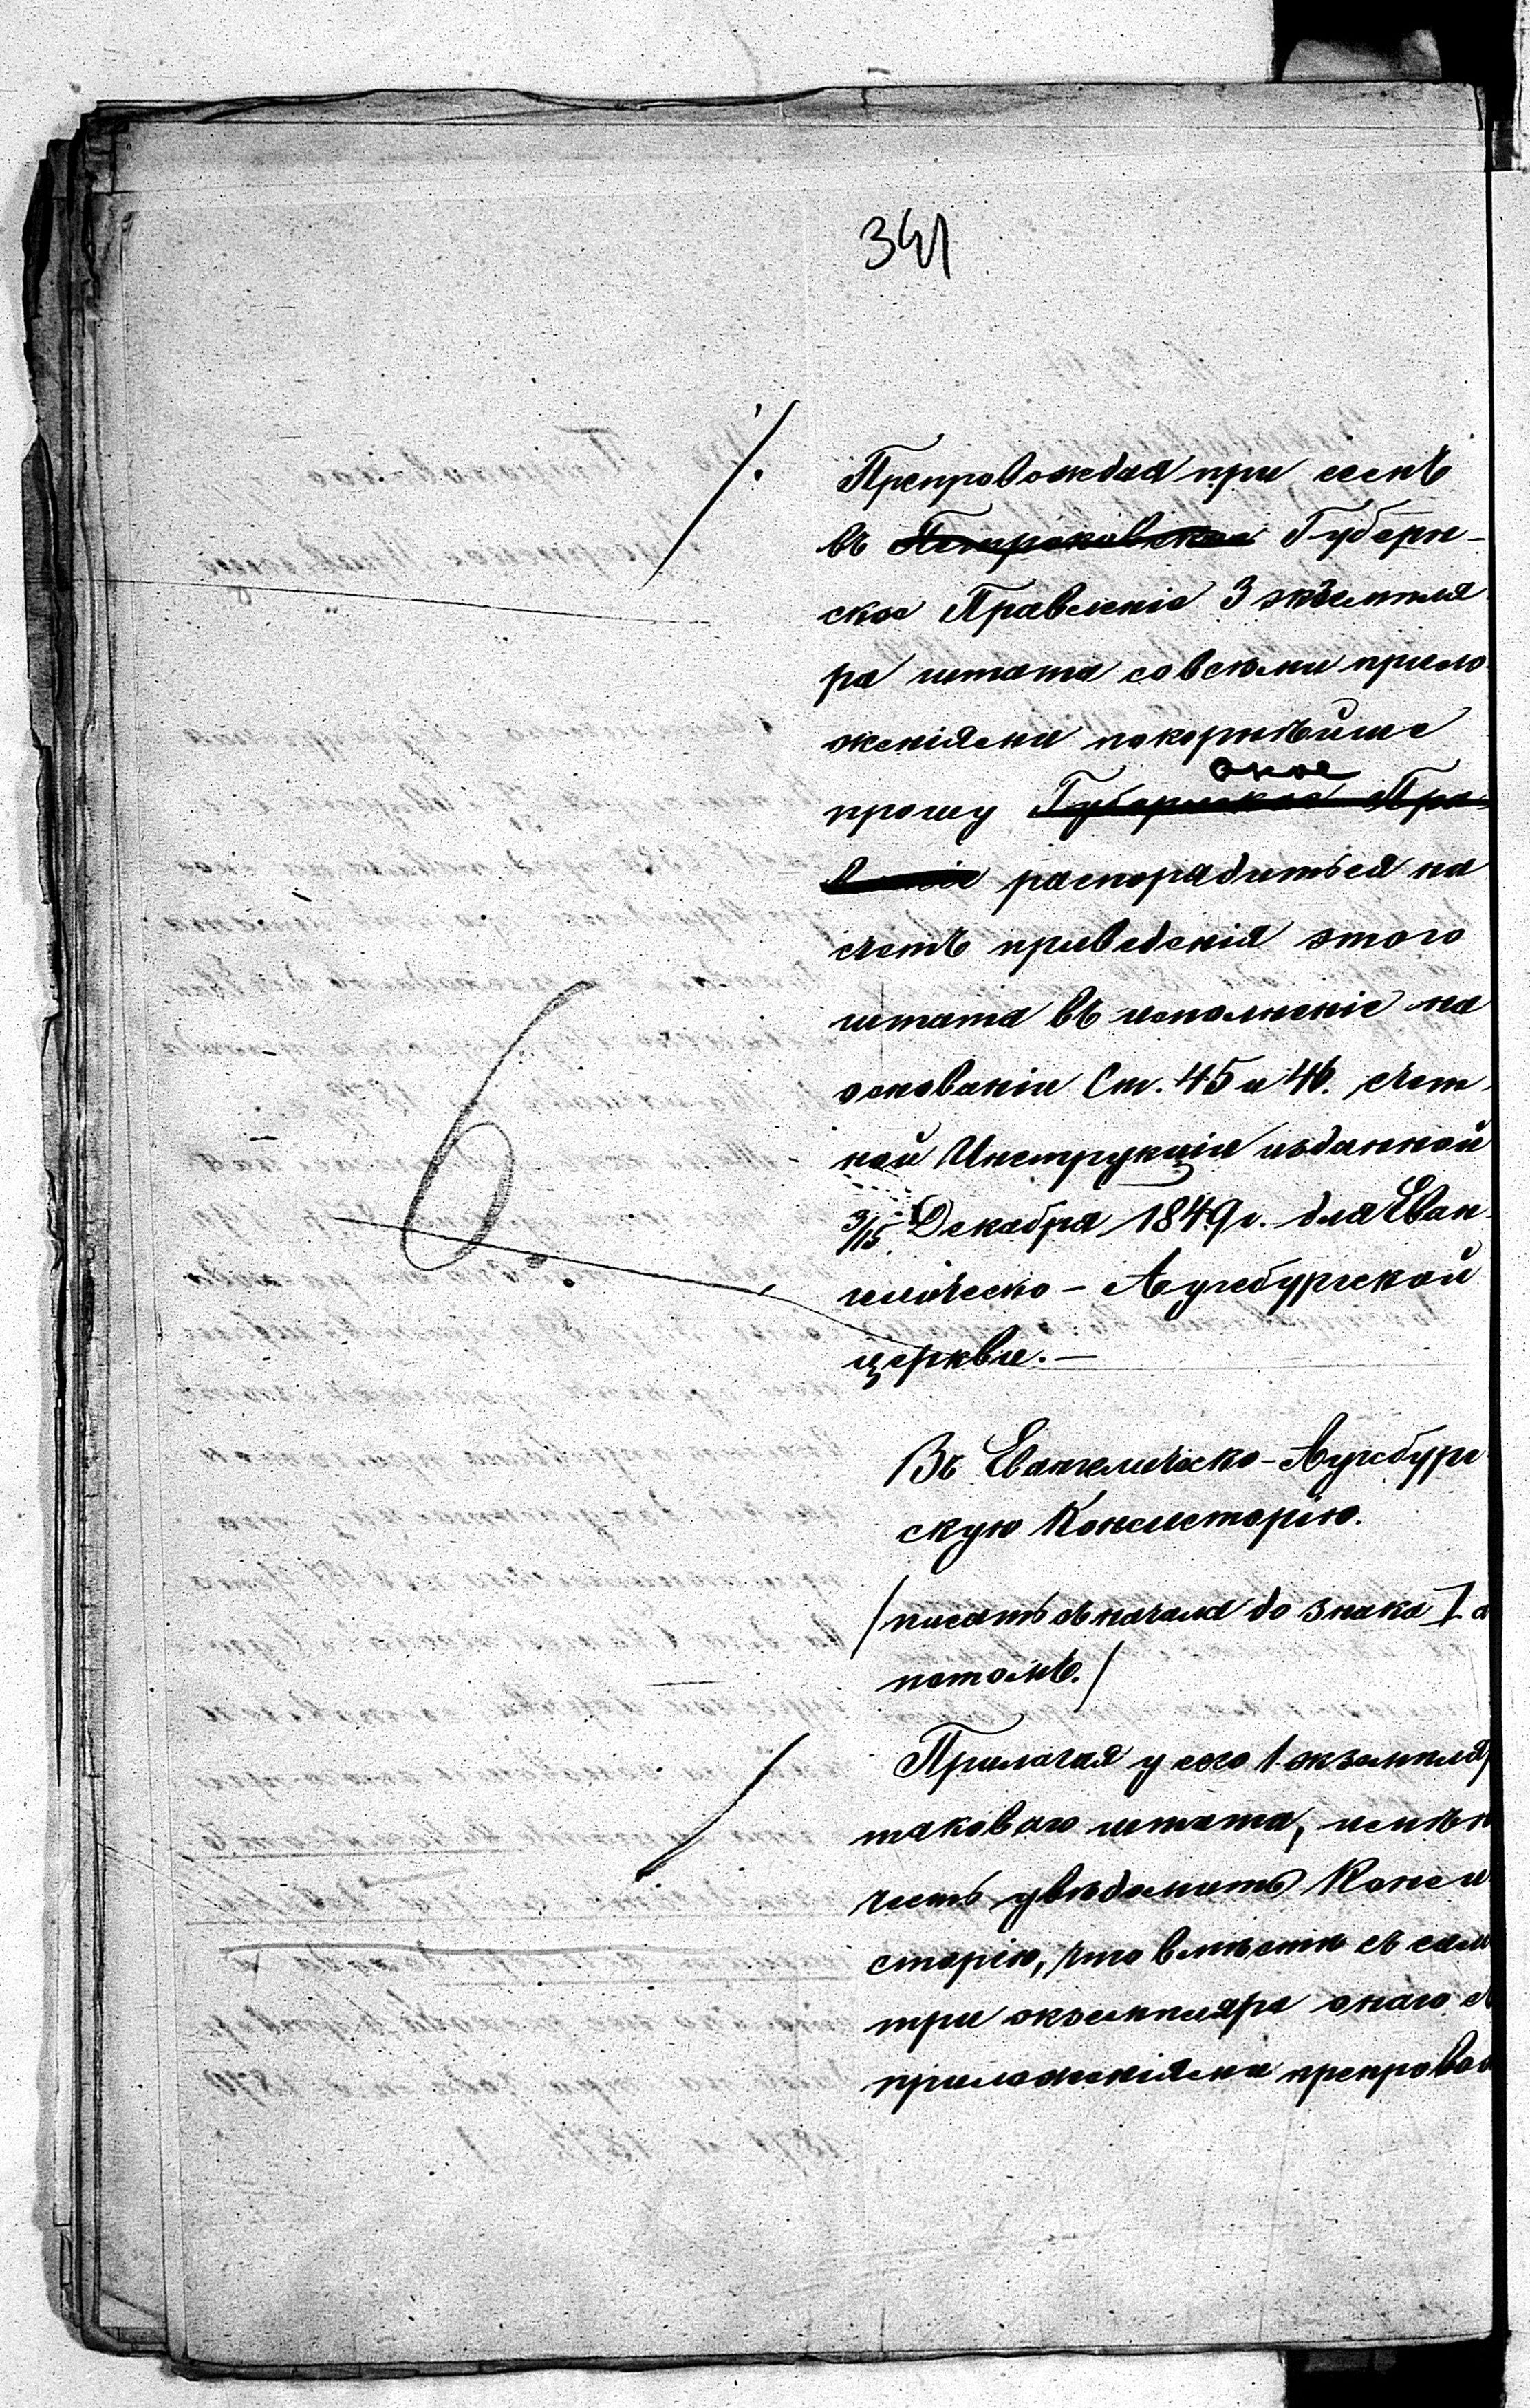 341
Препровождая при семъ
въ Петроковское Губерн-
ское Правленіе 3 экземпля
ра штата со всѣми прило
женіями покорнѣйше
оное
прошу Губернское Пра-
вленіе распорядиться на
счетъ приведенія этого
штата въ исполненіе на
основаніи Ст. 45 и 46. счет
ной Инструкціи изданной
3/15 Декабря 1849 г. для Еван
гелическо-Аугсбургской
церкви.—
Въ Евангелическо-Аугсбург
скую Консисторію.
/писать съ начала до знака ] а
потомъ./
Прилагая у сего 1. экземпляр
таковаго штата, имѣю
честь увѣдомить Конси
сторію, что вмѣстѣ съ сим
три экземпляра онаго с
приложеніями препровож
6